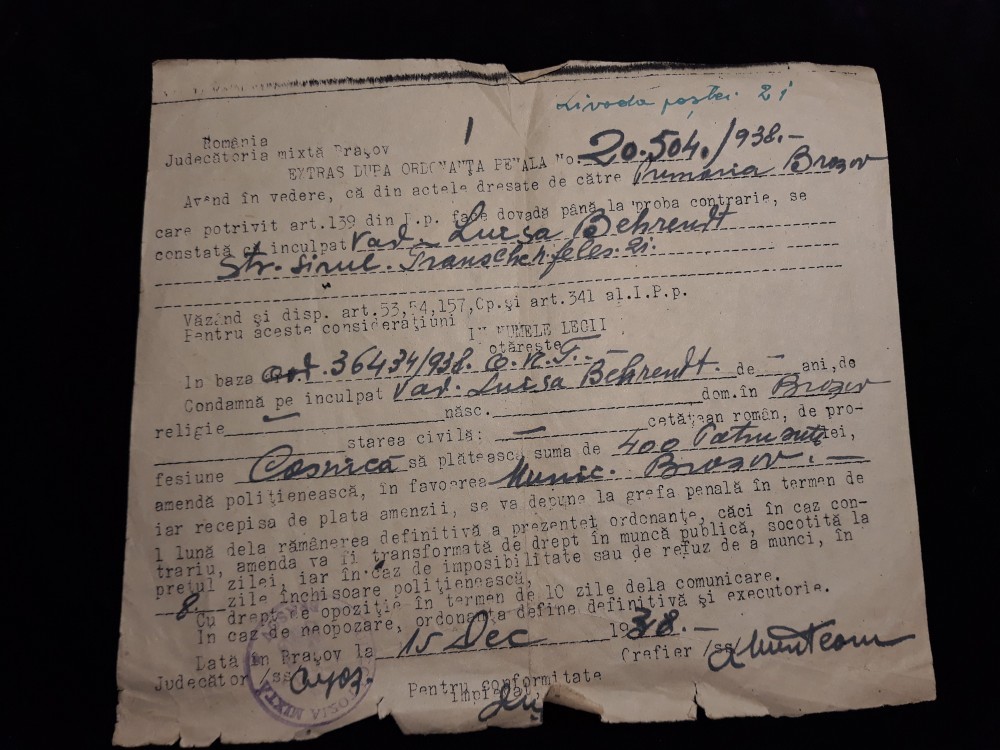 Livada poștei 21
1
România
Judecătoria mixtă Brașov
EXTRAS DUPA ORDONANȚA PENALA No. 20.504./938.-
Având în vedere, că din actele dresate de către Primăria Brașov
care potrivit art.139 din I.p. face dovadă până la proba contrarie, se
constată că inculpat Vad. Luisa Behrendt
Str. Sirul 21.
Văzând și disp. art.53,54,157,Cp.și art.341 al.I.P.p.
Pentru aceste considerațiuni
IN NUMELE LEGII
otărește
In baza art. 36434/938. O.N.T. -
Condamnă pe inculpat Vad. Luisa Behrendt. de - ani,de
religie - născ. dom.în Brașov
starea civilă: - cetățean român, de pro-
fesiune Casnică să plătească suma de 400 Patru sute lei,
amendă polițienească, în favoarea Munic. Brașov. -
iar recepisa de plata amenzii, se va depune la grefa penală în termen de
1 lună dela rămânerea definitivă a prezentei ordonanțe, căci în caz con-
trariu, amenda va fi transformată de drept în muncă publică, socotită la
prețul zilei, iar în caz de imposibilitate sau de refuz de a munci, în
8 zile închisoare polițienească,
Cu drept de opoziție în termen de 10 zile dela comunicare.
In caz de neopozare, ordonanța define definitivă și executorie.
Dată în Brașov la 15 Dec 1938.-
Judecător /ss/ Grefier /ss/ Munteanu
Pentru conformitate
Impiegat,
MIXTĂ